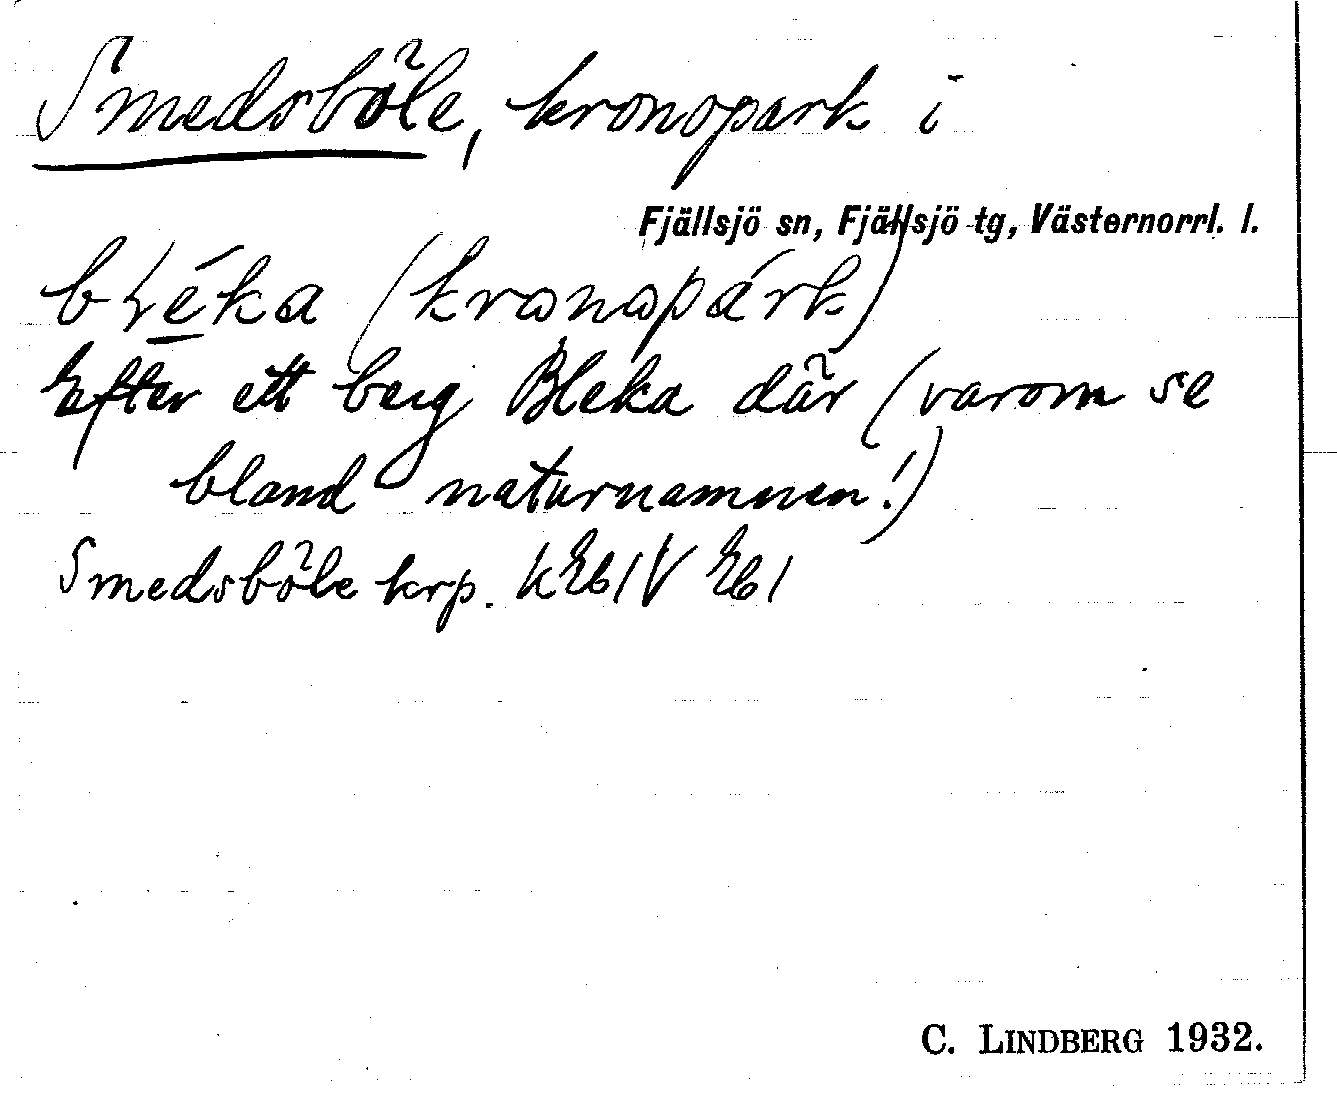 Smedsböle, kronopark i
Fjällsjö sn, Fjällsjö tg, Västernorrl. l.
błéka (kronopárk)
Efter ett berg Bleka där (varom se
bland naturnamnen!)
Smedsböle krp. k Eb IV Eb I
C. LINDBERG 1932.